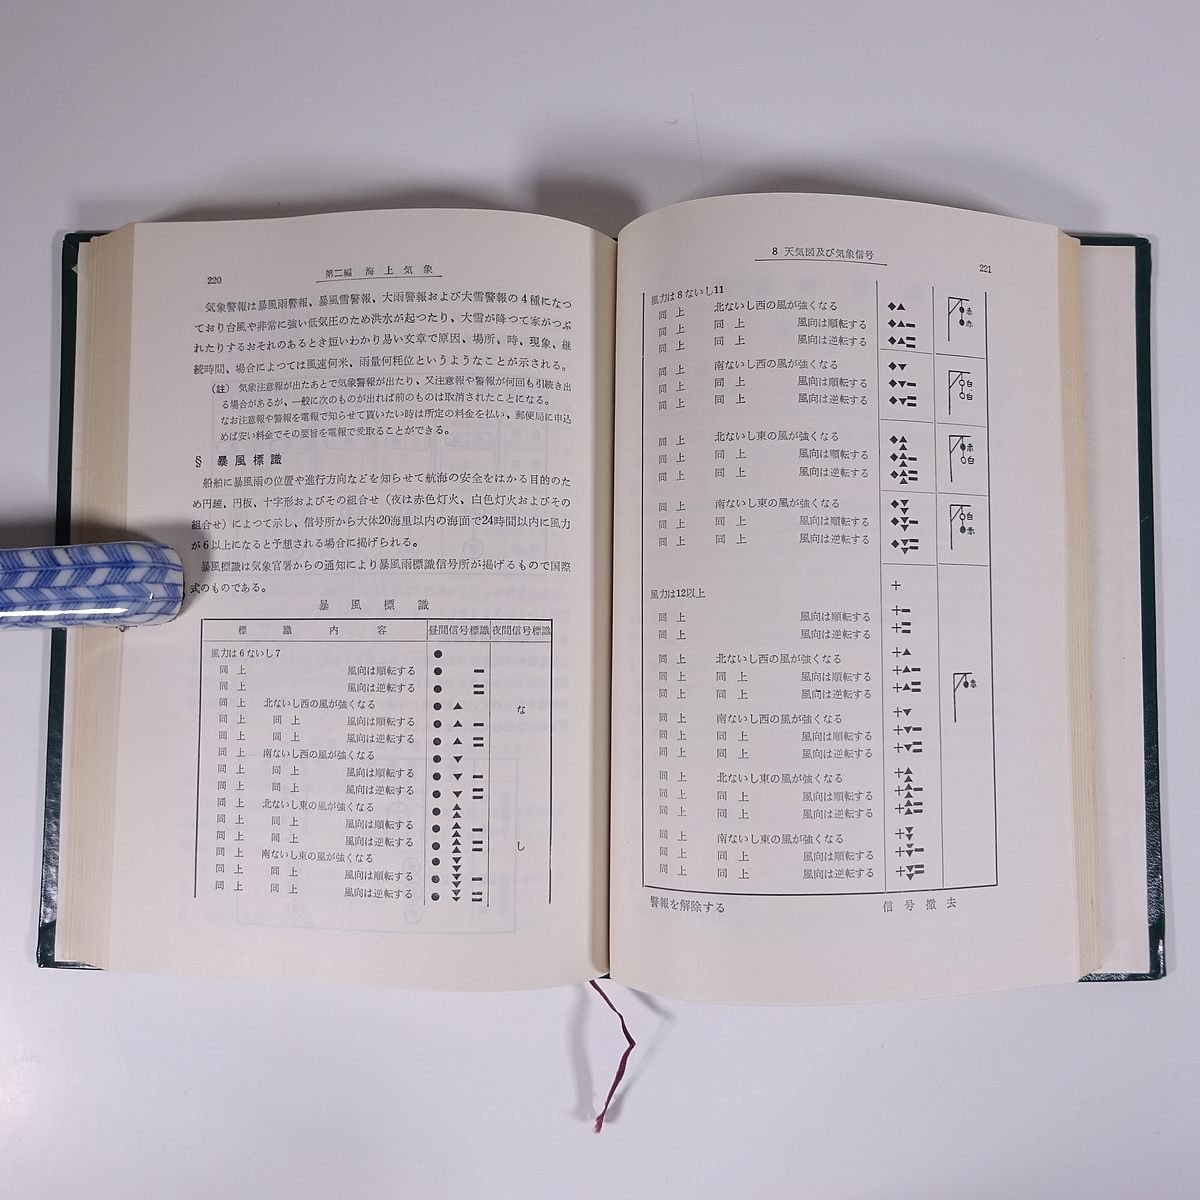 220
第二編 海上気象
気象警報は暴風雨警報、暴風雪警報、大雨警報および大雪警報の4種になつ
ており台風や非常に強い低気圧のため洪水が起つたり、大雪が降つて家がつぶ
れたりするおそれのあるとき短いわかり易い文章で原因、場所、時、現象、継
続時間、場合によつては風速何米、雨量何粍位というようなことが示される。
(註) 気象注意報が出たあとで気象警報が出たり、又注意報や警報が何回も引続き出
る場合があるが、一般に次のものが出れば前のものは取消されたことになる。
なお注意報や警報を電報で知らせて貰いたい時は所定の料金を払い、郵便局に申込
めば安い料金でその要旨を電報で受取ることができる。
§ 暴風標識
船舶に暴風雨の位置や進行方向などを知らせて航海の安全をはかる目的のた
め円錘、円板、十字形およびその組合せ(夜は赤色灯火、白色灯火およびその
組合せ)によつて示し、信号所から大体20海里以内の海面で24時間以内に風力
が6以上になると予想される場合に掲げられる。
暴風標識は気象官署からの通知により暴風雨標識信号所が掲げるもので国際
式のものである。
暴風標識
標識内容 昼間信号標識 夜間信号標識
風力は6ないし7 ●
同上 風向は順転する ●
同上 風向は逆転する ●
同上 北ないし西の風が強くなる ● ▲
同上 同上 風向は順転する ● ▲
同上 同上 風向は逆転する ● ▲
同上 南ないし西の風が強くなる ● ▼
同上 同上 風向は順転する ● ▼
同上 同上 風向は逆転する ● ▼
同上 北ないし東の風が強くなる ● ▲▲
同上 同上 風向は順転する ● ▲▲
同上 同上 風向は逆転する ● ▲▲
同上 南ないし東の風が強くなる ● ▼▼
同上 同上 風向は順転する ● ▼▼
同上 同上 風向は逆転する ● ▼▼
なし
8 天気図及び気象信号
221
風力は8ないし11
同上 北ないし西の風が強くなる ◆▲
同上 同上 風向は順転する ◆▲
同上 同上 風向は逆転する ◆▲
赤
赤
同上 南ないし西の風が強くなる ◆▼
同上 同上 風向は順転する ◆▼
同上 同上 風向は逆転する ◆▼
白
白
同上 北ないし東の風が強くなる ◆▲▲
同上 同上 風向は順転する ◆▲▲
同上 同上 風向は逆転する ◆▲▲
赤
白
同上 南ないし東の風が強くなる ◆▼▼
同上 同上 風向は順転する ◆▼▼
同上 同上 風向は逆転する ◆▼▼
白
赤
風力は12以上 +
同上 風向は順転する +
同上 風向は逆転する +
同上 北ないし西の風が強くなる +▲
同上 同上 風向は順転する +▲
同上 同上 風向は逆転する +▲
赤
同上 南ないし西の風が強くなる +▼
同上 同上 風向は順転する +▼
同上 同上 風向は逆転する +▼
同上 北ないし東の風が強くなる +▲▲
同上 同上 風向は順転する +▲▲
同上 同上 風向は逆転する +▲▲
同上 南ないし東の風が強くなる +▼▼
同上 同上 風向は順転する +▼▼
同上 同上 風向は逆転する +▼▼
警報を解除する 信号撤去